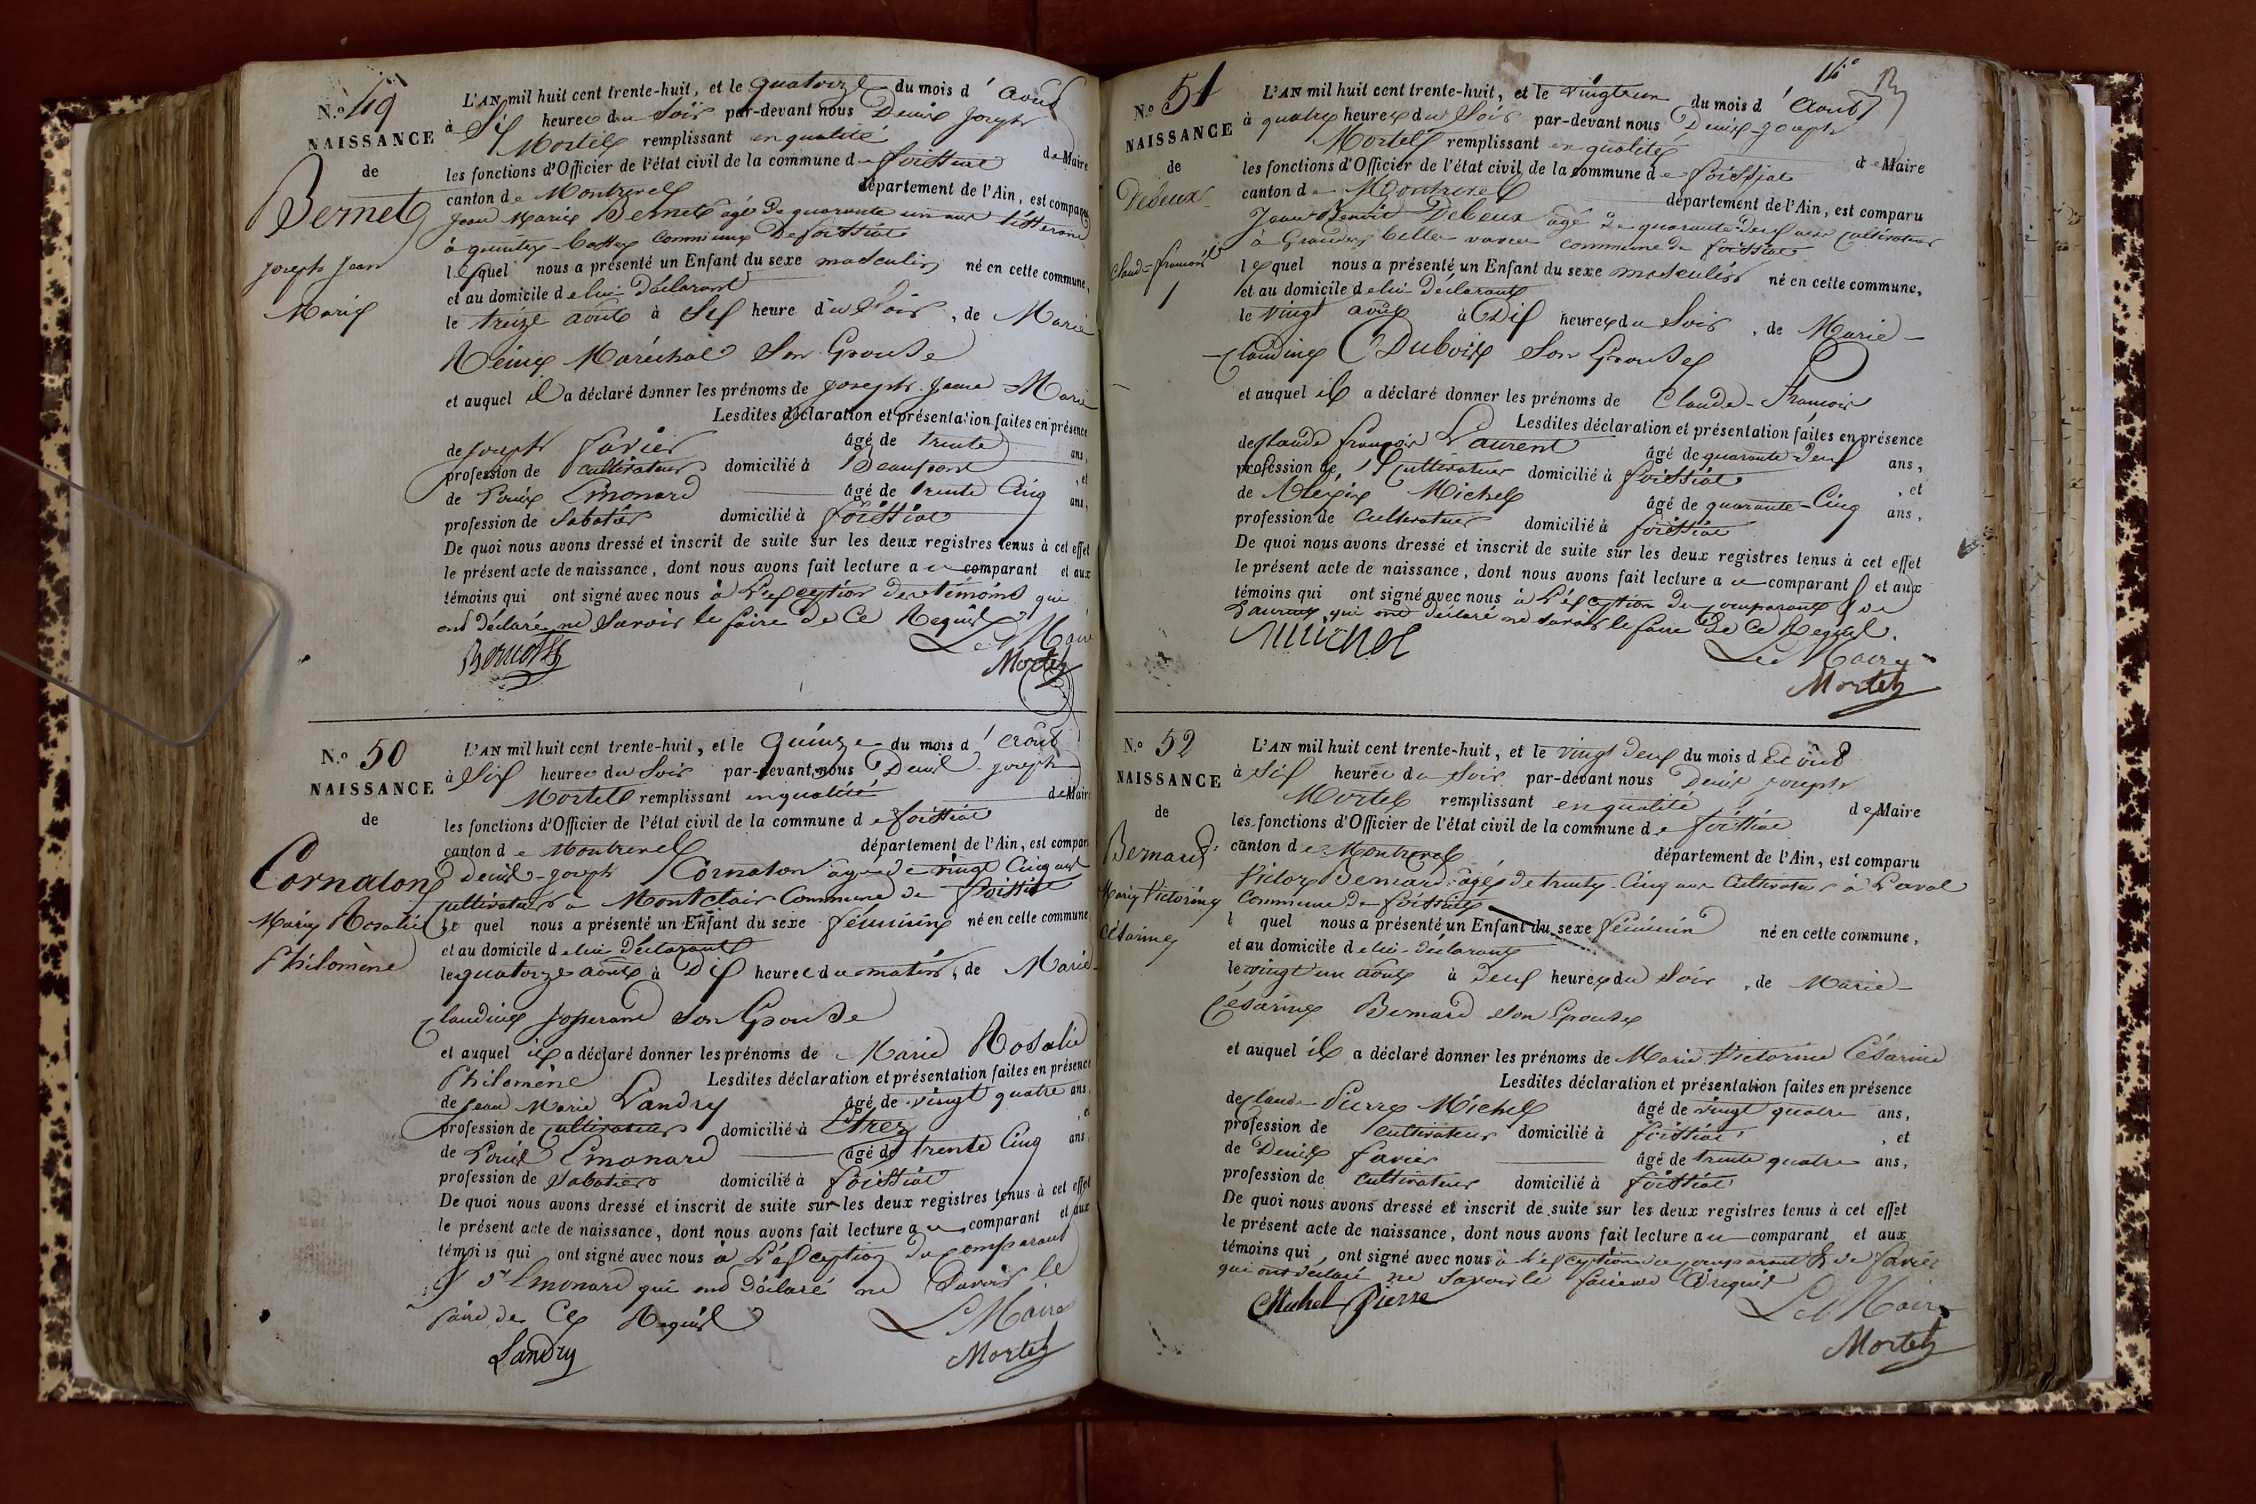 N.º 49
NAISSANCE
de
Bernet
Joseph Jean
Marie
L'AN mil huit cent trente-huit, et le quatorze du mois d'aout
à Six heures du Soir par-devant nous Denis Joseph
Mortel remplissant en qualité de Maire
les fonctions d'Officier de l'état civil de la commune de foissiat
canton de Montrevel département de l'Ain, est comparu
Jean Marie Bernet agé de quarante un ans
commune De foissiat
lequel nous a présenté un Enfant du sexe masculin né en cette commune,
et au domicile de lui Déclarant
le treize aout à Six heure du Soir, de Marie
Reine Maréchal Son Epouse
et auquel il a déclaré donner les prénoms de Joseph Jean Marie
Lesdites déclaration et présentation faites en présence
de Joseph Favier âgé de trente ans,
profession de cultivateur domicilié à Beaupont, et
de Louis Emonard âgé de trente Cinq ans,
profession de Sabotier domicilié à foissiat
De quoi nous avons dressé et inscrit de suite sur les deux registres tenus à cet effet
le présent acte de naissance, dont nous avons fait lecture au comparant et aux
témoins qui ont signé avec nous à L'exception des témoins qui
ont déclaré ne Savoir le faire de Ce Requis
Le Maire
Mortel
N.º 50
NAISSANCE
de
Cornaton
Marie Rosalie
Philomène
L'AN mil huit cent trente-huit, et le quinze du mois d'aout
à Six heures du Soir par-devant nous Denis Joseph
Mortel remplissant en qualité de Maire
les fonctions d'Officier de l'état civil de la commune de foissiat
canton de Montrevel département de l'Ain, est comparu
Denis-Joseph Cornaton agé de vingt Cinq ans
cultivateur a Montclair Commune de foissiat
lequel nous a présenté un Enfant du sexe féminin né en cette commune
et au domicile de lui Déclarant
le quatorze aout à Dix heures du matin, de Marie
Claudine Josserand Son Epouse
et auquel il a déclaré donner les prénoms de Marie Rosalie
Philomène Lesdites déclaration et présentation faites en présence
de Jean Marie Landry âgé de vingt quatre ans,
profession de cultivateur domicilié à Etrez, et
de Louis Emonard âgé de trente Cinq ans
profession de Sabotier domicilié à foissiat
De quoi nous avons dressé et inscrit de suite sur les deux registres tenus à cet effet
le présent acte de naissance, dont nous avons fait lecture au comparant et aux
témoins qui ont signé avec nous à L'exception du comparant
& d'Emonard qui ont Déclaré ne Savoir le
faire de Ce Requis
Le Maire
Landry
Mortel
14e
N.º 51
NAISSANCE
de
Debeux
Claude-francois
L'AN mil huit cent trente-huit, et le vingt un du mois d'aout
à quatre heures du Soir par-devant nous Denis-Joseph
Mortel remplissant en qualité de Maire
les fonctions d'Officier de l'état civil de la commune de foissiat
canton de Montrevel département de l'Ain, est comparu
Jean Benoit Debeux agé de quarante Deux ans cultivateur
commune de foissiat
lequel nous a présenté un Enfant du sexe masculin né en cette commune,
et au domicile de lui Déclarant
le vingt aout à Dix heures du Soir, de Marie-
Claudine Dubois Son Epouse
et auquel il a déclaré donner les prénoms de Claude-Francois
Lesdites déclaration et présentation faites en présence
de Claude françois Laurent âgé de quarante Deux ans,
profession de Cultivateur domicilié à foissiat, et
de Alexis Michel âgé de quarante-Cinq ans,
profession de cultivateur domicilié à foissiat
De quoi nous avons dressé et inscrit de suite sur les deux registres tenus à cet effet
le présent acte de naissance, dont nous avons fait lecture au comparant et aux
témoins qui ont signé avec nous à L'exception du comparant & de
Laurent qui ont déclaré ne savoir le faire De Ce Requis.
Michel
Le Maire
Mortel
N.º 52
NAISSANCE
de
Bernard
Marie Victorine
Césarine
L'AN mil huit cent trente-huit, et le vingt Deux du mois d'aout
à Six heures du Soir par-devant nous Denis Joseph
Mortel remplissant en qualité de Maire
les fonctions d'Officier de l'état civil de la commune de foissiat
canton de Montrevel département de l'Ain, est comparu
Victor Bernard agé de trente-Cinq ans Cultivateur à Laval
Commune De foissiat
l quel nous a présenté un Enfant du sexe féminin né en cette commune,
et au domicile de lui déclarant
le vingt un aout à Deux heures du Soir, de Marie-
Césarine Bernard Son Epouse
et auquel il a déclaré donner les prénoms de Marie Victorine Césarine
Lesdites déclaration et présentation faites en présence
de Claude Pierre Michel âgé de vingt quatre ans,
profession de cultivateur domicilié à foissiat, et
de Denis Favier âgé de trente quatre ans,
profession de cultivateur domicilié à foissiat
De quoi nous avons dressé et inscrit de suite sur les deux registres tenus à cet effet
le présent acte de naissance, dont nous avons fait lecture au comparant et aux
témoins qui ont signé avec nous à L'exception du comparant & de Favier
qui ont déclaré ne Savoir le faire de Ce requis
Michel Pierre
Le Maire
Mortel